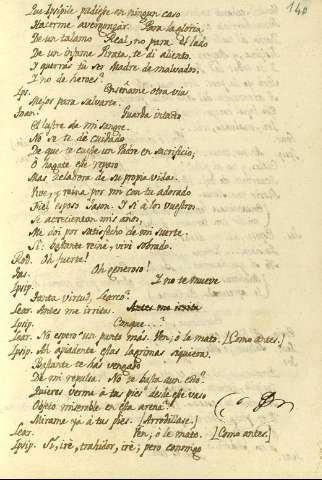 140
Que Isipile pudiese en ningun caso
Hacerme avergonzar. Para la gloria
De un talamo Real, no para el lado
De un infame Pirata, te di aliento.
Y querrás tu ser Madre de malvados,
Y no de heroes?
Ips. Enseñame otra via
Mejor para salvarte.
Toan. Guarda intacto
El lustre de mi sangre.
No se te dé cuidado
De que te cueste un Padre en sacrificio;
O hagate el reparo
Mas zeladora de su propia vida.
Vive, y reina por mi con tu adorado
Fiel esposo Jason. Y si a los vuestros
Se acrecientan mis años,
Me doi por satisfecho de mi suerte.
Si: bastante reiné, vivi sobrado.
Rod. Oh fuerte!
Jas. Oh generoso!
Ipsip. Y no te mueve
Tanta virtud, Learco?
Lear. Antes me irrita. Antes me irrita
Ipsip. Conque...?
Lear. No espero un punto más. Ven; ó le mato. [Como antes.]
Ipsip. Ah apiadente estas lagrimas siquiera.
Bastante te has vengado
De mi repulsa. No te basta aun esto?
Quieres verme á tus pies desde ese vaso
Objeto miserable en esta arena?
Mirame ya á tus pies. [Arrodillase.]
Lear. Ven; ó le mato. [Como antes.]
Ipsip. Si, iré, trahidor, iré; pero conmigo